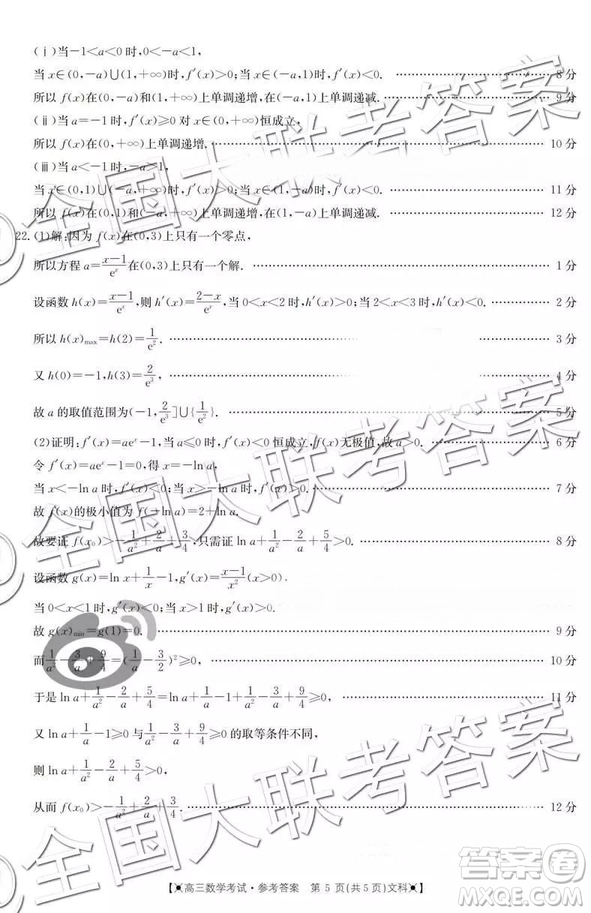 (ⅰ)当-1<a<0时,0<-a<1,
当x∈(0,-a)∪(1,+∞)时,f′(x)>0;当x∈(-a,1)时,f′(x)<0. 8分
所以f(x)在(0,-a)和(1,+∞)上单调递增,在(-a,1)上单调递减. 9分
(ⅱ)当a=-1时,f′(x)≥0对x∈(0,+∞)恒成立,
所以f(x)在(0,+∞)上单调递增. 10分
(ⅲ)当a<-1时,-a>1,
当x∈(0,1)∪(-a,+∞)时,f′(x)>0;当x∈(1,-a)时,f′(x)<0. 11分
所以f(x)在(0,1)和(-a,+∞)上单调递增,在(1,-a)上单调递减. 12分
22.(1)解:因为f(x)在(0,3)上只有一个零点,
所以方程a=\frac{x-1}{e^x}在(0,3)上只有一个解. 1分
设函数h(x)=\frac{x-1}{e^x},则h′(x)=\frac{2-x}{e^x},当0<x<2时,h′(x)>0;当2<x<3时,h′(x)<0. 2分
所以h(x)_{max}=h(2)=\frac{1}{e^2}. 3分
又h(0)=-1,h(3)=\frac{2}{e^3}, 4分
故a的取值范围为(-1,\frac{2}{e^3}]∪{\frac{1}{e^2}}. 5分
(2)证明:f′(x)=ae^x-1,当a≤0时,f′(x)<0恒成立,f(x)无极值,故a>0. 6分
令f′(x)=ae^x-1=0,得x=-ln a,
当x<-ln a时,f′(x)<0;当x>-ln a时,f′(x)>0. 7分
故f(x)的极小值为f(-ln a)=2+ln a.
故要证f(x_0)>-\frac{1}{a^2}+\frac{2}{a}+\frac{3}{4},只需证ln a+\frac{1}{a^2}-\frac{2}{a}+\frac{5}{4}>0. 8分
设函数g(x)=ln x+\frac{1}{x}-1,g′(x)=\frac{x-1}{x^2}(x>0).
当0<x<1时,g′(x)<0;当x>1时,g′(x)>0.
故g(x)_{min}=g(1)=0. 9分
而\frac{1}{a^2}-\frac{3}{a}+\frac{9}{4}=(\frac{1}{a}-\frac{3}{2})^2≥0, 10分
于是ln a+\frac{1}{a^2}-\frac{2}{a}+\frac{5}{4}=ln a+\frac{1}{a}-1+\frac{1}{a^2}-\frac{3}{a}+\frac{9}{4}≥0. 11分
又ln a+\frac{1}{a}-1≥0与\frac{1}{a^2}-\frac{3}{a}+\frac{9}{4}≥0的取等条件不同,
则ln a+\frac{1}{a^2}-\frac{2}{a}+\frac{5}{4}>0,
从而f(x_0)>-\frac{1}{a^2}+\frac{2}{a}+\frac{3}{4}. 12分
【高三数学考试·参考答案 第5页(共5页)文科】
全国大联考答案
全国大联考答案
全国大联考答案
答案圈
MXQE.COM